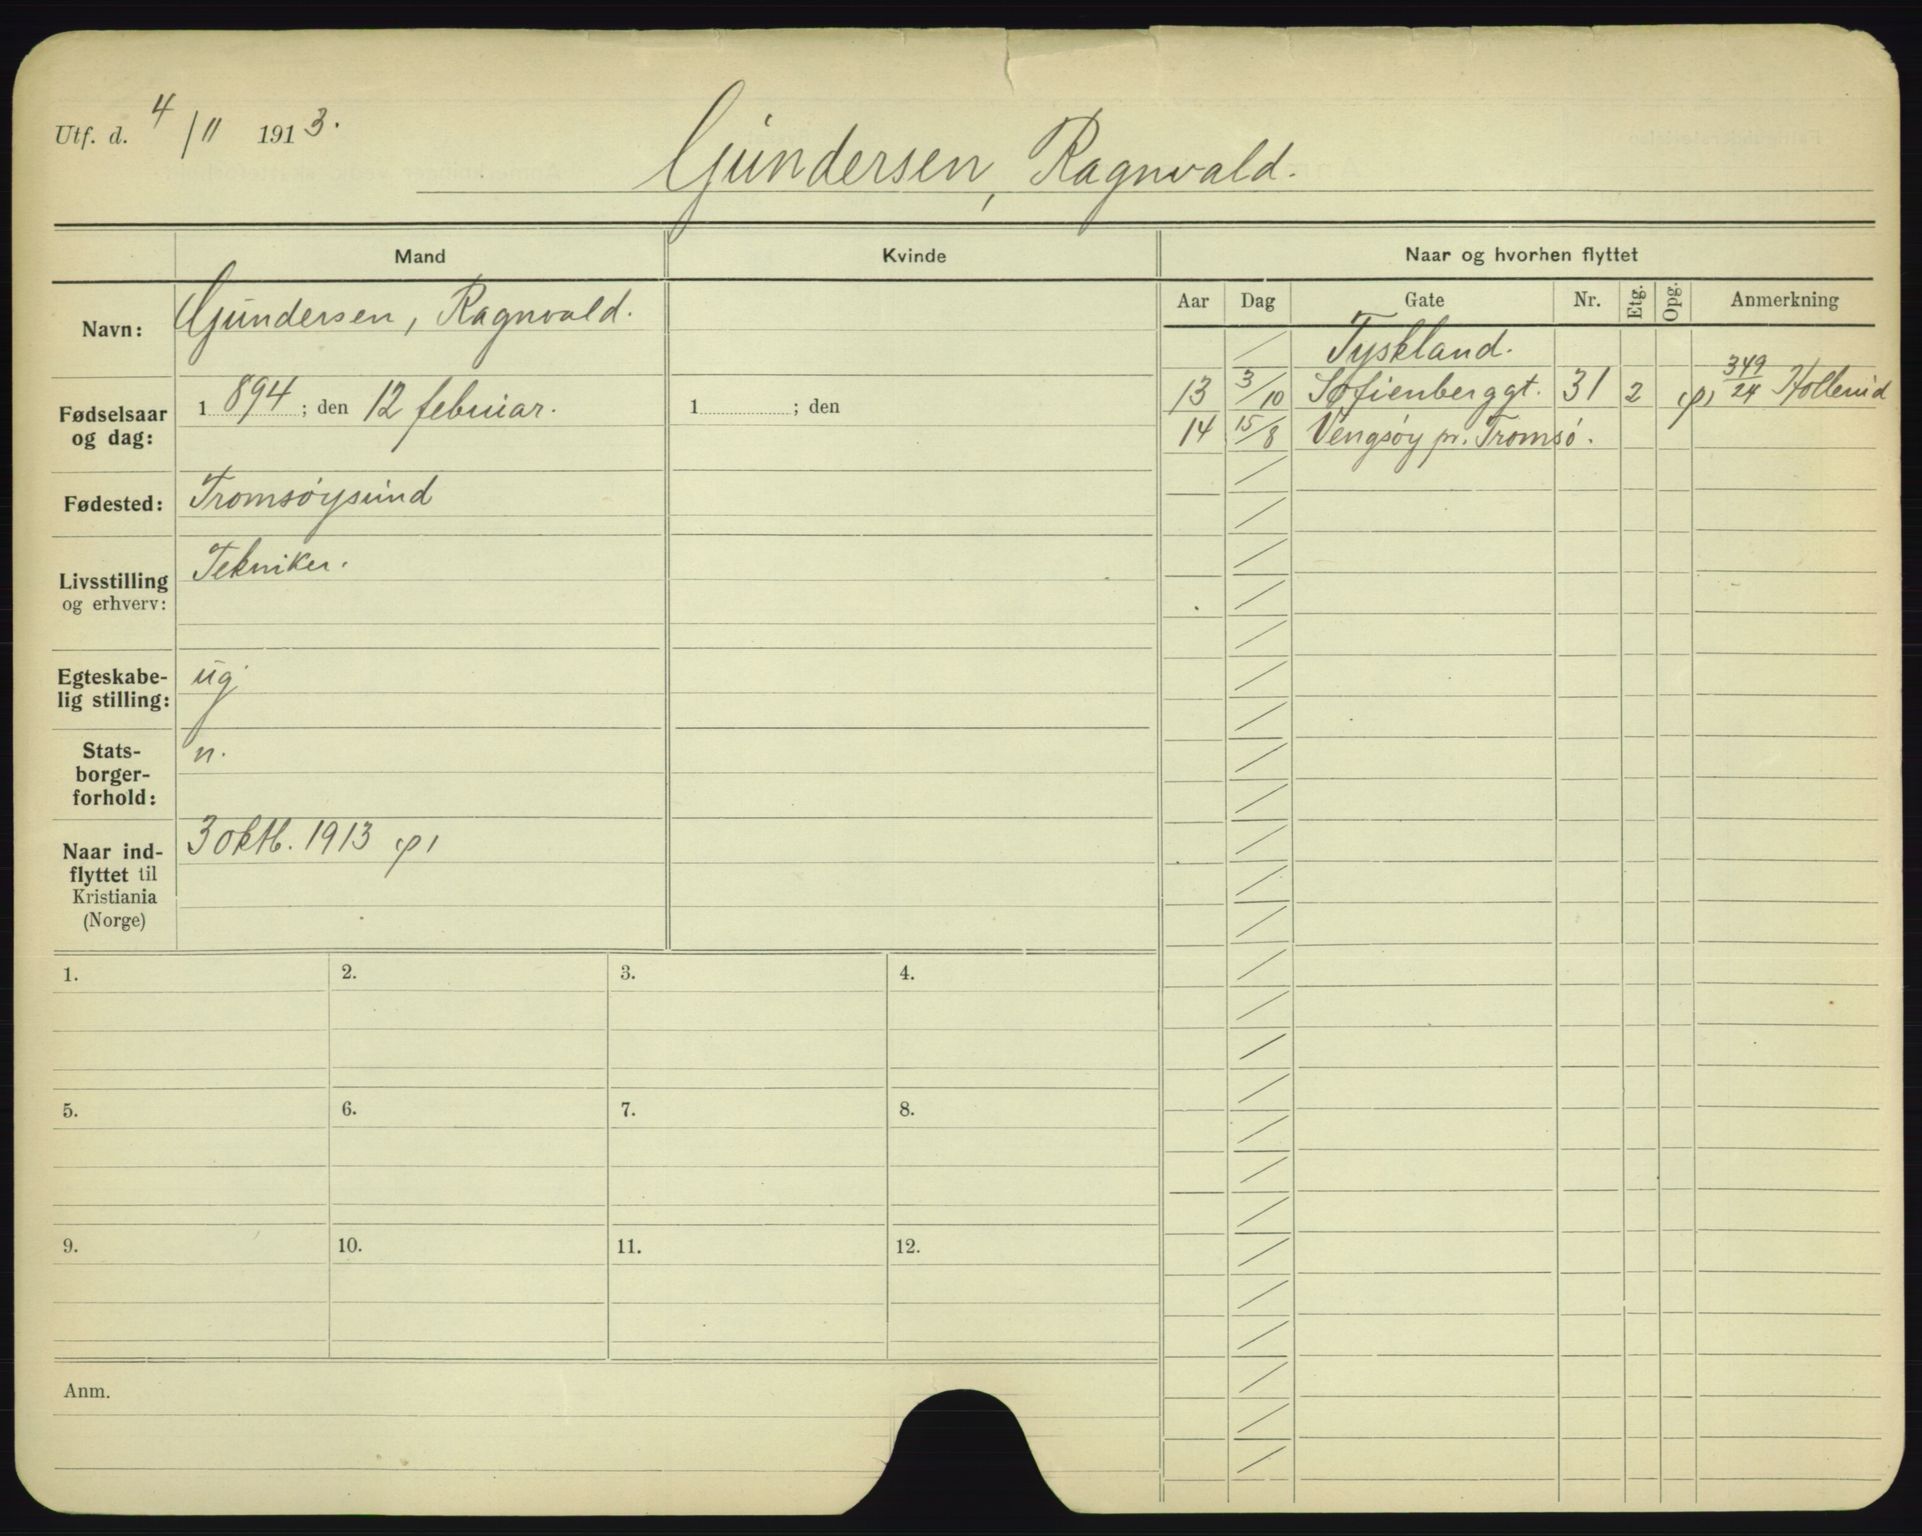 Utf. d. 4/11 1913.
Gundersen, Ragnvald.
Mand
Kvinde
Naar og hvorhen flyttet
Navn: Gundersen, Ragnvald.
Fødselsaar og dag: 1894; den 12 februar.
1 ; den
Fødested: Tromsøysund
Livsstilling og erhverv: Tekniker.
Egteskabe-
lig stilling: ug
Stats-
borger-
forhold: n.
Naar ind-
flyttet til
Kristiania
(Norge)
3 oktb. 1913
Aar Dag Gate Nr. Etg. Opg. Anmerkning
Tyskland.
13 3/10 Sofienberggt. 31 2 349/24
14 15/8 Vengsøy pr. Tromsø.
1. 2. 3. 4.
5. 6. 7. 8.
9. 10. 11. 12.
Anm.